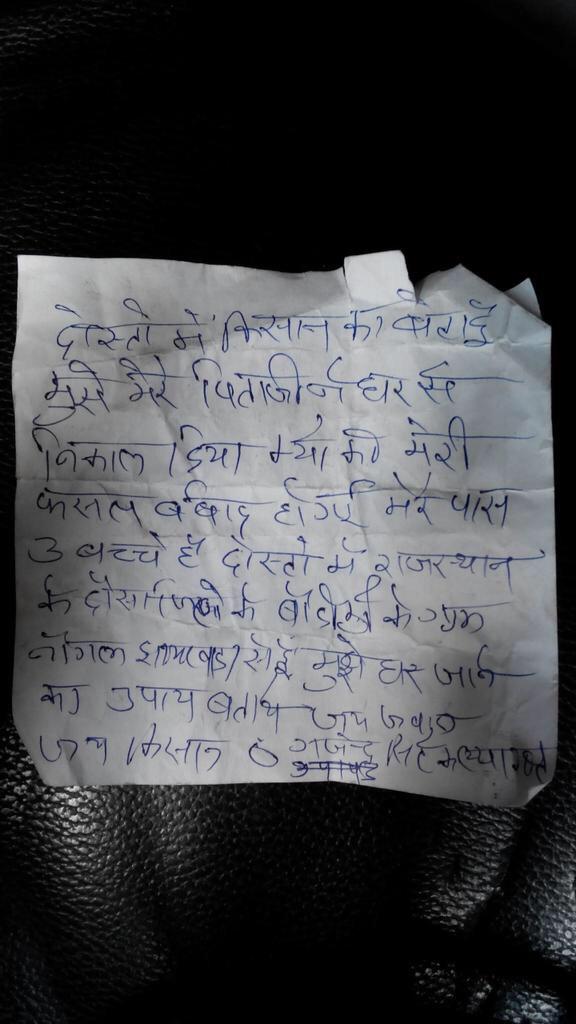 दोस्तो में किसान का बेटा हुँ
मुझे मेरे पिताजी ने घर से
निकाल दिया क्यो की मेरी
फसल बर्बाद हो गई मेरे पास
3 बच्चे है दोस्तो में राजस्थान
के दौसा जिले के के गाम
नाँगल झामरवाडा से हुँ मुझे घर जाने
का उपाय बताये जय जवान
जय किसान गजेन्द्र सिंह कल्याणवत